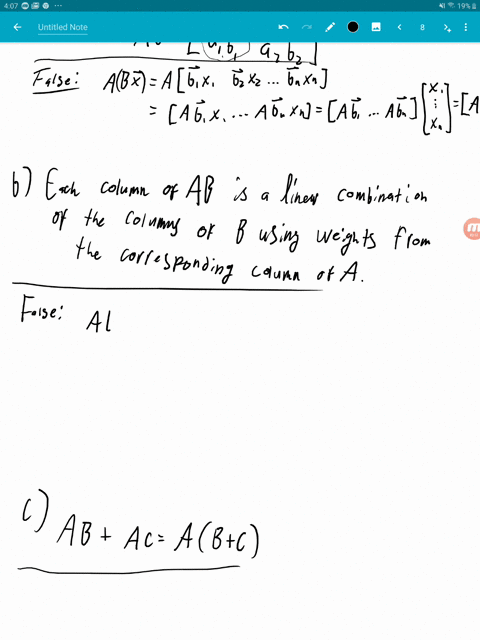 4:07
19%
Untitled Note
8
[a⃗₁b⃗₁ a⃗₂b⃗₂]
False: A(Bx⃗) = A[b⃗₁x₁ b⃗₂x₂ ... b⃗ₙxₙ]
= [Ab⃗₁x₁ ... Ab⃗ₙxₙ] = [Ab⃗₁ ... Ab⃗ₙ] [x₁ ⋮ xₙ] = [A
b) Each column of AB is a linear combination
of the columns of B using weights from
the corresponding column of A.
False: Al
c)
AB + AC = A(B+C)